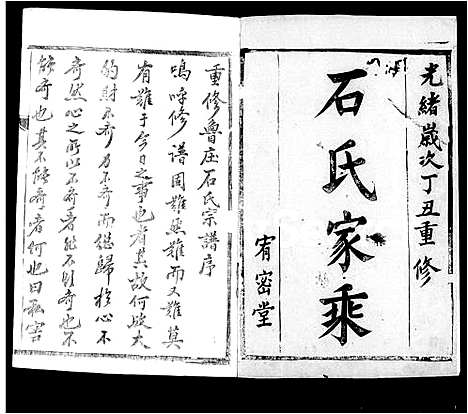 光緒歲次丁丑重修
石氏家乘
宥密堂
重修魯庄石氏宗譜序
嗚呼修譜固難然難而又難莫
有難于今日之事也者其故何歟夫
豹財不齊乃不齊而總歸於心不
齊然心之所以不齊者能不別齊也不
能齊也其不能齊者何也曰私害